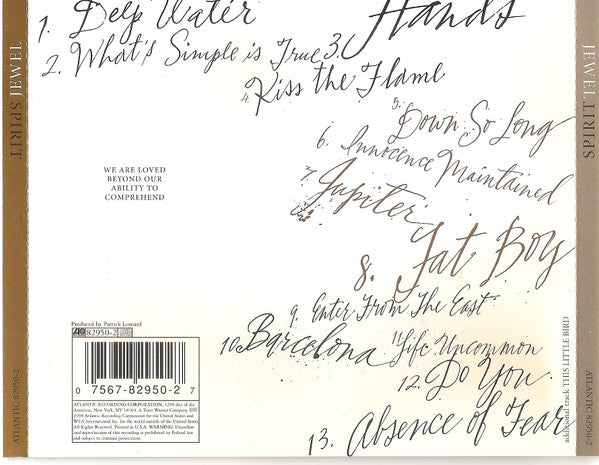 SPIRIT JEWEL
ATLANTIC 82950-2
1. Deep Water
2. What's Simple is True
3. Hands
4. Kiss the Flame
5. Down So Long
6. Innocence Maintained
7. Jupiter
8. Fat Boy
9. Enter From The East
10. Barcelona
11. Life Uncommon
12. Do You
13. Absence of Fear
additional track THIS LITTLE BIRD
WE ARE LOVED
BEYOND OUR
ABILITY TO
COMPREHEND
Produced by Patrick Leonard
82950-2
0 7567-82950-2 7
ATLANTIC RECORDING CORPORATION, 1290 Ave of the
Americas, New York, NY 10104. A Time Warner Company. ©℗
1998 Atlantic Recording Corporation for the United States and
WEA International Inc. for the world outside of the United
States. Printed in U.S.A. WARNING: Unauthor-
ized reproduction of this recording is prohibited by Federal law
and subject to criminal prosecution.
JEWEL SPIRIT
ATLANTIC 82950-2